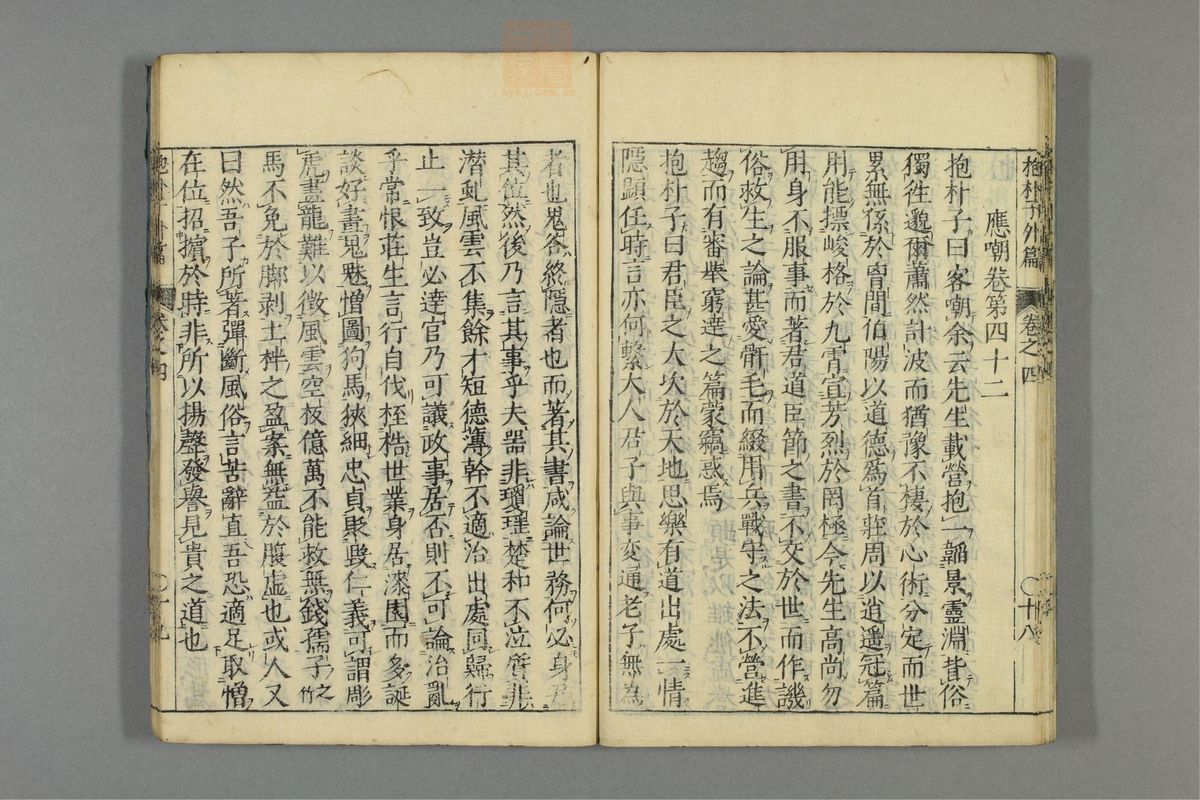 抱朴子外篇 卷之四 〇十八
應嘲卷第四十二
抱朴子曰客嘲余云先生載營抱一韜景靈淵背俗
獨徃邈爾蕭然計波而猶豫不棲於心術分定而世
累無係於胷間伯陽以道德爲首莊周以逍遥冠篇
用能摽峻格於九霄宣芳烈於罔極今先生高尚勿
用身不服事而著君道臣節之書不交於世而作譏
俗救生之論甚愛骭毛而綴用兵戰守之法不營進
趨而有審舉窮達之篇蒙竊惑焉
抱朴子曰君臣之大次於天地思樂有道出處一情
隱顯任時言亦何繫大人君子與事変通老子無為
者也鬼谷終隱者也而著其書咸論世務何必身居
其位然後乃言其事乎夫器非瓊瑶楚和不泣質非
潛虬風雲不集餘才短德薄幹不適治出處同歸行
止一致豈必達官乃可議政事居否則不可論治亂
乎常恨莊生言行自伐桎梏世業身居漆園而多誕
談好畫鬼魅憎圖狗馬狹細忠貞貶毀仁義可謂彫
虎畫龍難以徵風雲空板億萬不能救無錢孺子之竹
馬不免於脚剥土柈之盈案無益於腹虛也或人又
曰然吾子所著彈斷風俗言苦辭直吾恐適足取憎
在位招擯於時非所以揚聲發譽見貴之道也
抱朴子外篇 卷之四 〇十九